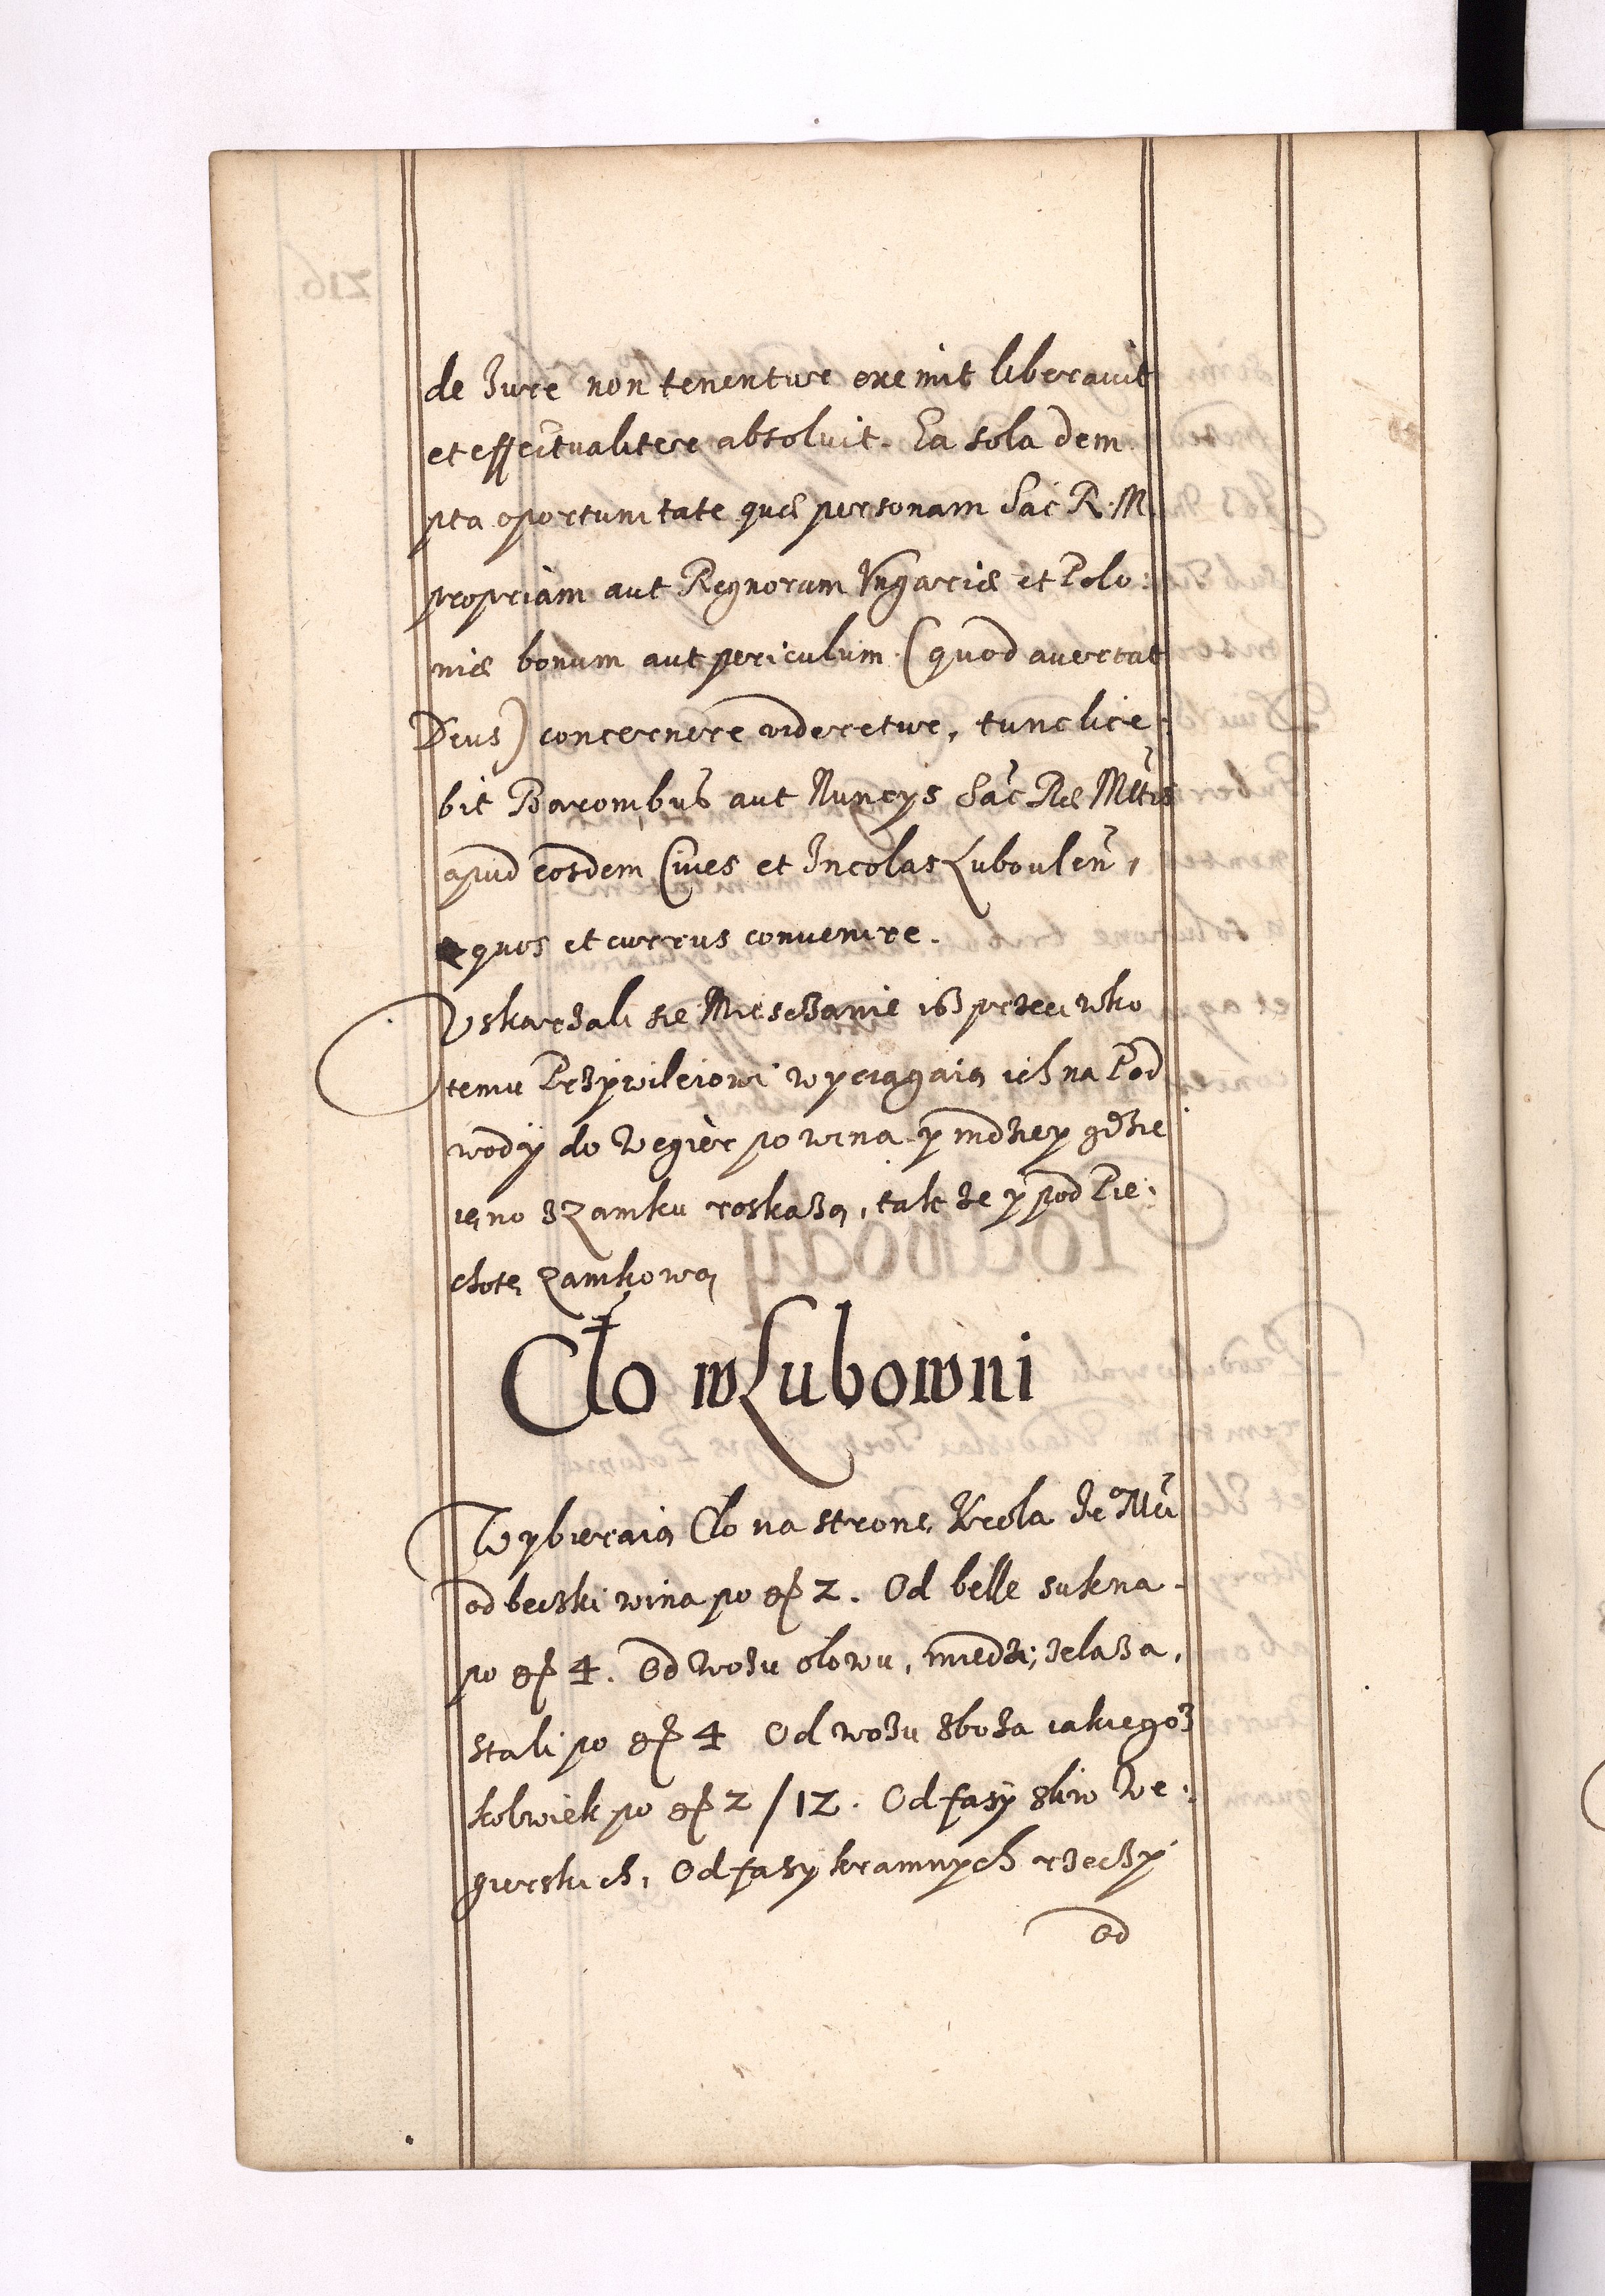 de Jure non tenentur exemit liberauit
et effectualiter absoluit. Ea sola dem
pta oportunitate quæ personam Sac R. M.
propriam aut Regnorum Vngariæ et Polo:
niæ bonum aut periculum (quod auertat
Deus) concernere videretur, tunc lice:
bit Baronibus aut Nuncys Sac Ræ Mttis
apud eosdem Ciues et Incolas Luboulen,
equos et currus conuenire.
Vskarzali sie Miesczanie isz przeciwko
temu Przywileiowi wyciągaią ich na Pod
wody do Węgier po wina y indziey gdzie
ieno z Zamku roskażą, tak ze y pod Pie:
chotę Zamkową
Cło w Lubowni
Wybieraią Clo na stronę Krola Je Mći
od beczki wina po gr 2. Od belle sukna
po gr 4. Od wozu ołowu, miedzi, zelaza,
stali po gr 4 Od wozu zboża iakiegoz
kolwiek po gr 2 / 12. Od fasy sliw We:
gierskich, Od fasy kramnych rzeczy
od